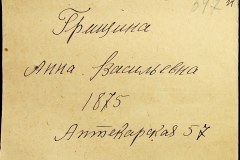 Грищина
Анна Васильевна
1875
Аптекарская 57